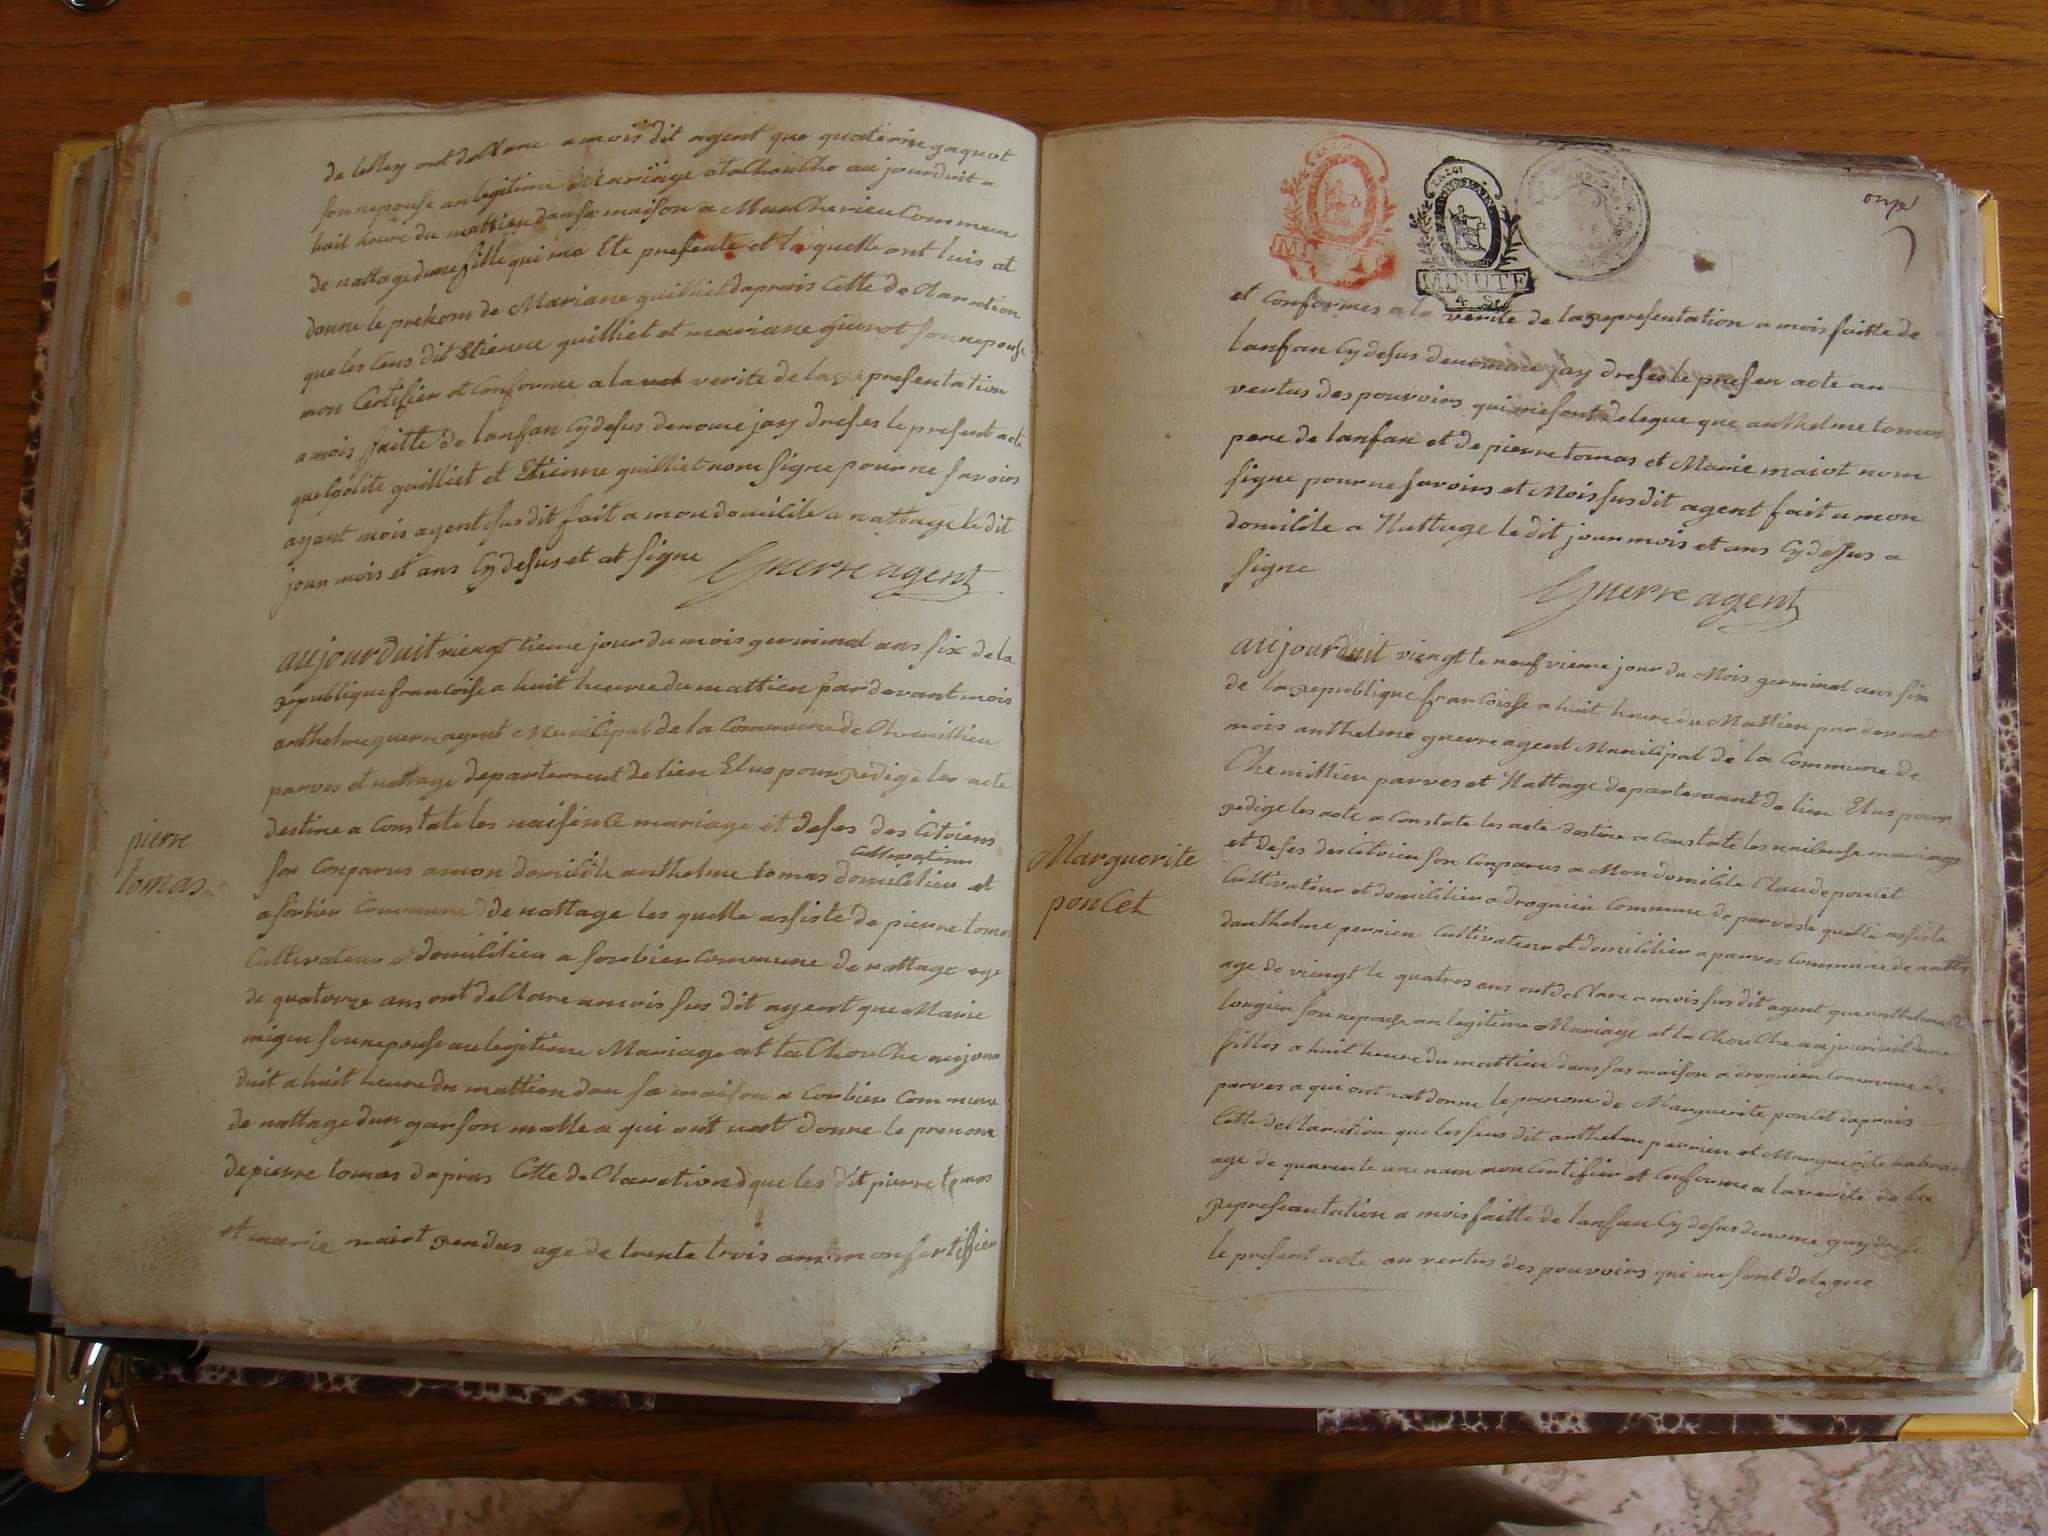 de lelley ont dellare a mois dit agent que quaterine gaquot
son nepouse an legitime Mariage at a lhoulhe au jourduit a
huit heure du mattien dans sa maison a Mancherieu Commune
de nattage dune fille qui ma Ete presente et la quelle ont luis at
donne le prehons de Mariane guilliet daprais Cette de Claration
que les Cens dit Etienne guilliet et mariane guirot son nepouse
mon Certifier et Conforme a la verite de la representation
a mois faitte de lanfan Cy desus denome jay dreses le present acte
que et Etienne guilliet nom signe pour ne savoirs
ayant mois agent sus dit fait a mon domicile a nattage le dit
jour mois et ans Cy desus et at signe Guerre agent
aujourduit viengt tieme jour du mois germinal ans six de la
republique francoise a huit heure du mattien par devant mois
anthelme guerre agent Municipal de la Commune de Chemillieu
parves et nattage departement de lien Elus pour redige les acte
destine a Constate les naisence mariage et deses des Citoiens
Cultivateur
son Conparus a mon domicile anthelme tomas domicilieu et
a sorbier Commune de nattage les quelle assiste de pierre tomas
Cultivateur et domicilieu a sorbier Commune de nattage age
de quatorze ans ont dellare a mois sus dit agent que Marie
migeu son nepouse au legiteme Mariage at la Choulhe aujour
duit a huit heure du mattien dan sa maison a Corbier Commune
de nattage dun garson malle a qui ont nat donne le prenom
de pierre tomas daprais Cette de Claration d que les dit pierre tomas
et marie maiot rendus age de trente trois ans mon sertifier
pierre
tomas
onze
MINUTE
MINUTE
4. S.
et Conformes a la verite de la representation a mois faitte de
lanfan Cy desus denomme jay dreses le presen acte an
vertus des pouvoirs qui me sont delegue que anthelme tomas
pere de lanfan et de pierre tomas et Marie maiot nom
signe pour ne savoirs et Mois sus dit agent fait a mon
domicile a Nattage le dit jour mois et ans Cy desus a
signe
Guerre agent
aujourduit viengt te neuf vieme jour du Mois germinal ans six
de la republique francoisse a huit heure du Mattien par devant
mois anthelme guerre agent Municipal de la Commune de
Chemillieu parves et Nattage departemant de lien Elus pour
redige les acte a Constate les acte destine a Constate les naisense mariage
et deses des Citoien son Conparus a Mon domicile Claude poncet
Cultivateur et domicilier a drognieu Commune de parves le quelle assiste
danthelme perrien Cultivateur et domicilier a parves Commune de natta
age de viengt te quatres ans ont de Clare a mois sus dit agent que anthelmette
longieu son nepouse an legitime Mariage at la Choulhe aujourduit dune
filles a huit heure du mattien dans sas maison a drognieu Commune de
parves a qui ont nat donne le prenom de Marguerite poncet daprais
Cette dellaration que les sens dit anthelme perrien et Marguerite
age de quarente une nam mon Certifier et Conforme a la verite de la
represeantation a mois faitte de lanfan Cy desus denome jay drese
le present acte an vertus des pouvoirs qui me sont delegue
Marguerite
poncet